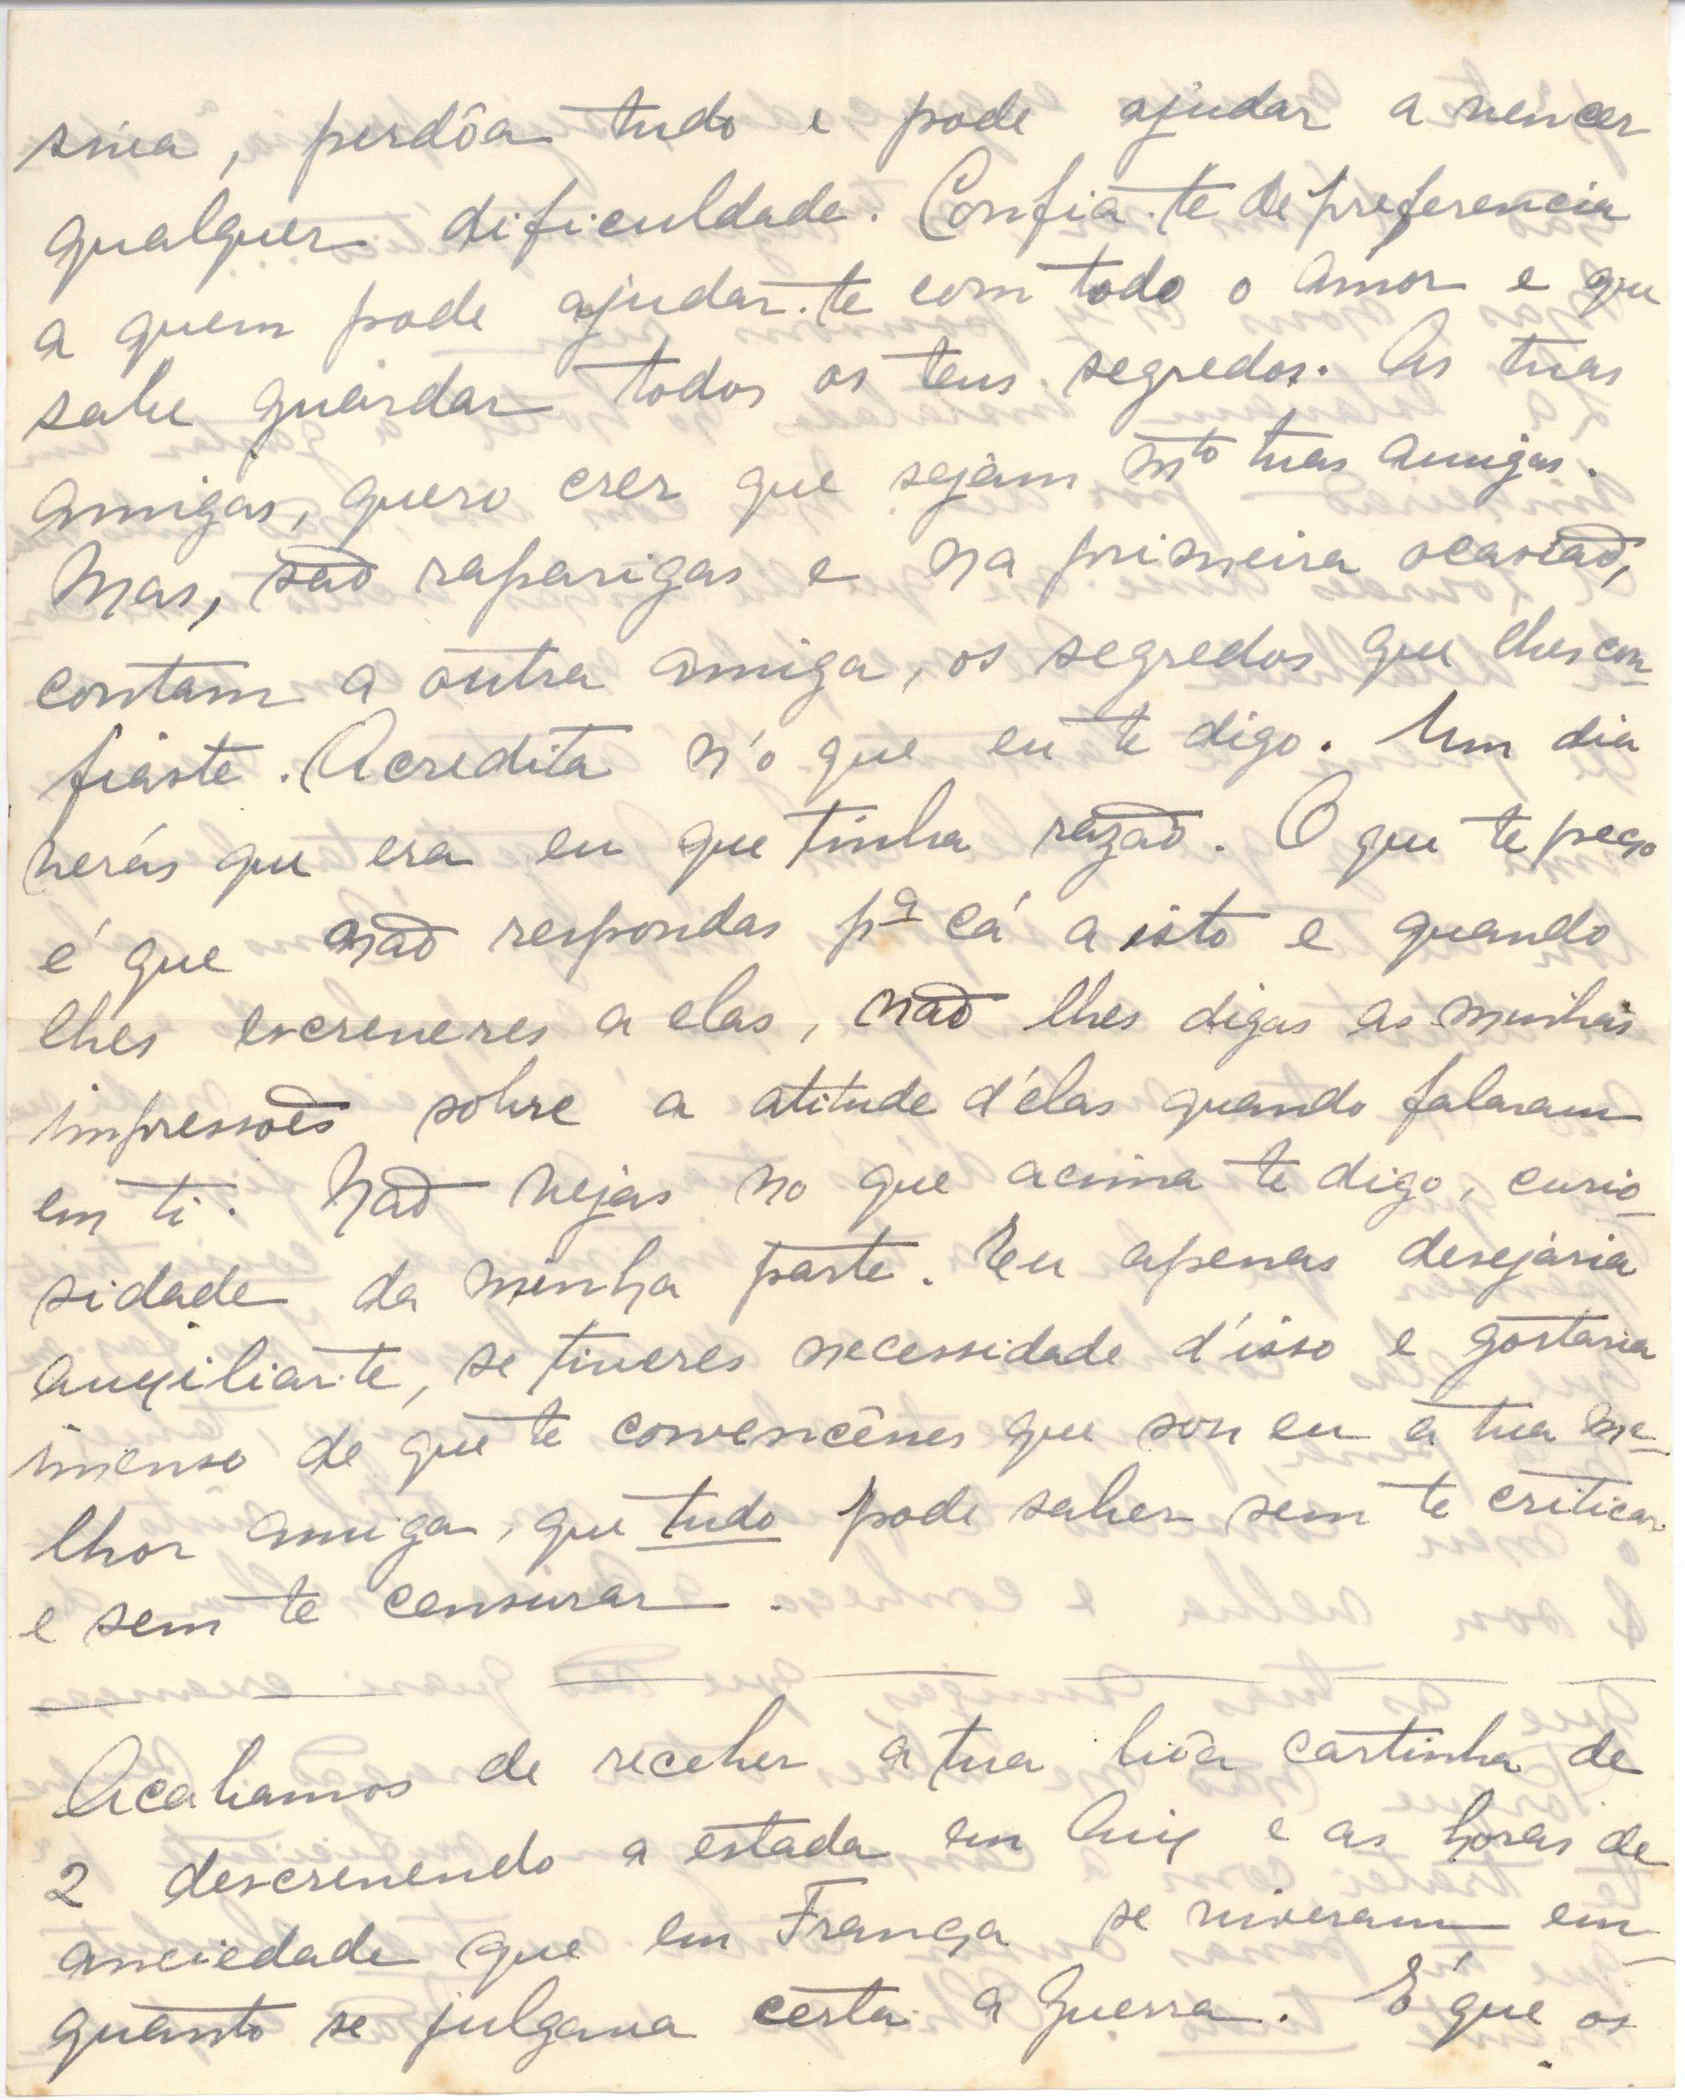 sinea, perdôa tudo e pode ajudar a vencer
qualquer dificuldade. Confia-te de preferencia
a quem pode ajudar-te com todo o amor e que
sabe guardar todos os teus segredos. As tuas
amigas, quero crer que sejam mto tuas amigas.
Mas, são raparigas e na primeira ocasião,
contam a outra amiga, os segredos que lhes con-
fiaste. Acredita n'o que eu te digo. Um dia
verás que era eu que tinha razão. O que te peço
é que não respondas pª cá a isto e quando
lhes escreveres a elas, não lhes digas as minhas
impressões sobre a atitude d'elas quando falaram
em ti. Não vejas no que acima te digo, curio-
sidade da minha parte. Eu apenas desejaria
auxiliar-te, se tiveres necessidade d'isso e gostaria
imenso de que te convencêsses que sou eu a tua me-
lhor amiga, que tudo pode saber sem te criticar
e sem te censurar.
Acabamos de receber a tua bôa cartinha de
2 descrevendo a estada em Aix e as horas de
anciedade que em França se viveram em-
quanto se julgava certa a guerra. É que os